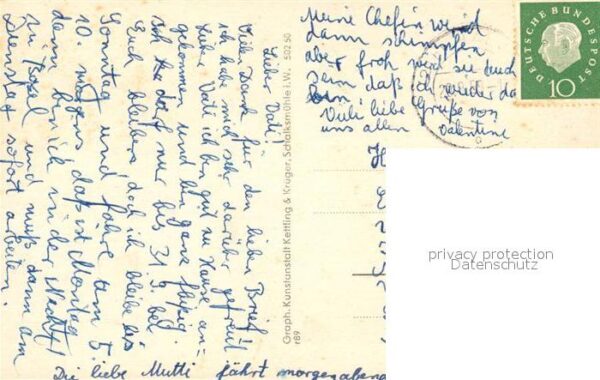 Lieber Vati!
Vielen Dank für den lieben Brief
ich habe mich sehr darüber gefreut
Lieber Vati ich bin gut zu Hause an-
gekommen und bin ganz fleißig.
Ich darf nur bis 31.5 bei
Euch bleiben doch ich bleibe bis
Sonntag und fahre am 5.
10. morgens daß ist Montag
dann bin ich in der Nacht
in Basel und muß dann am
Dienstag sofort arbeiten.
Die liebe Mutti fährt morgen abend
Meine Chefin wird
dann schimpfen
aber froh wird sie auch
sein daß ich wieder da
bin
Viele liebe Grüße von
uns allen Valentine
Graph. Kunstanstalt Kettling & Krüger, Schalksmühle i.W. 502 50
r89
DEUTSCHE BUNDESPOST
10
privacy protection
Datenschutz